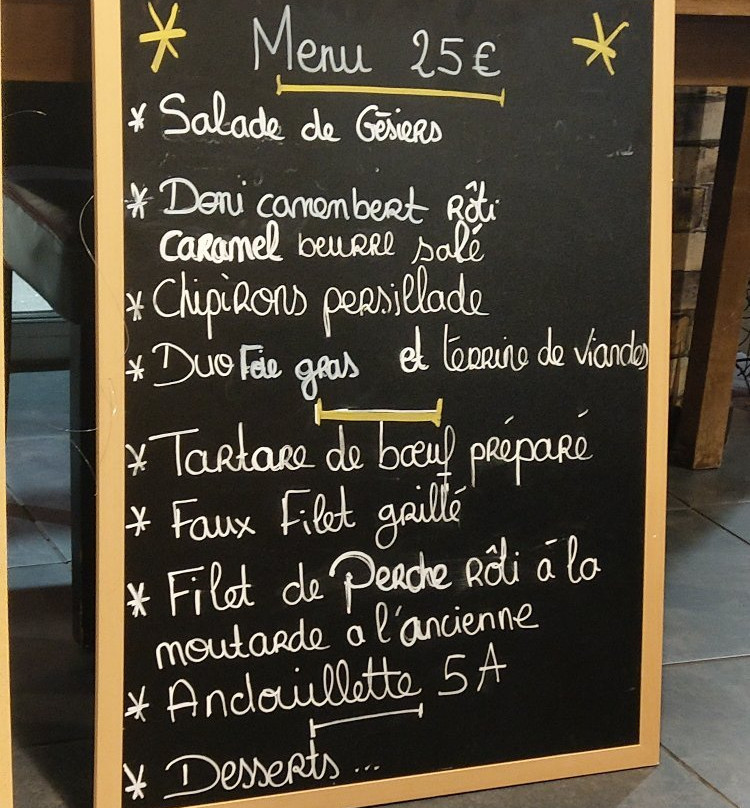 Menu 25€
* Salade de Gésiers
* Demi camembert Rôti
caramel beurre salé
* Chipirons persillade
* Duo Foie gras et terrine de viandes
* Tartare de bœuf préparé
* Faux Filet grillé
* Filet de Perche Rôti à la
moutarde a l'ancienne
* Andouillette 5 A
* Desserts ...